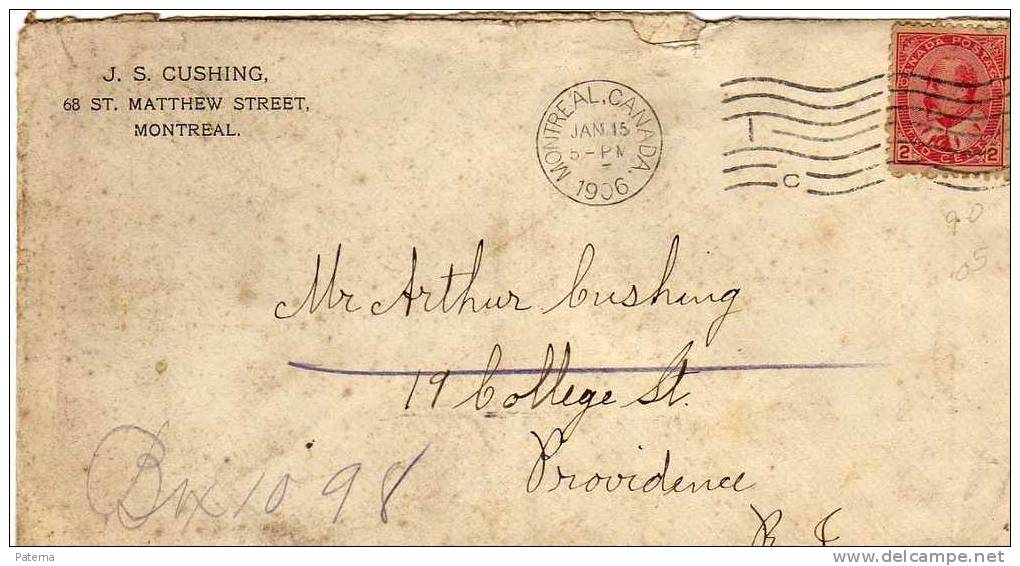 J. S. CUSHING,
68 ST. MATTHEW STREET,
MONTREAL.
MONTREAL, CANADA.
JAN 15
5-PM
1906
I
C
CANADA POSTAGE
2 TWO CENTS 2
90
05
Mr Arthur Cushing
19 College St.
Providence
R. I
Box 1098
Paterna
www.delcampe.net